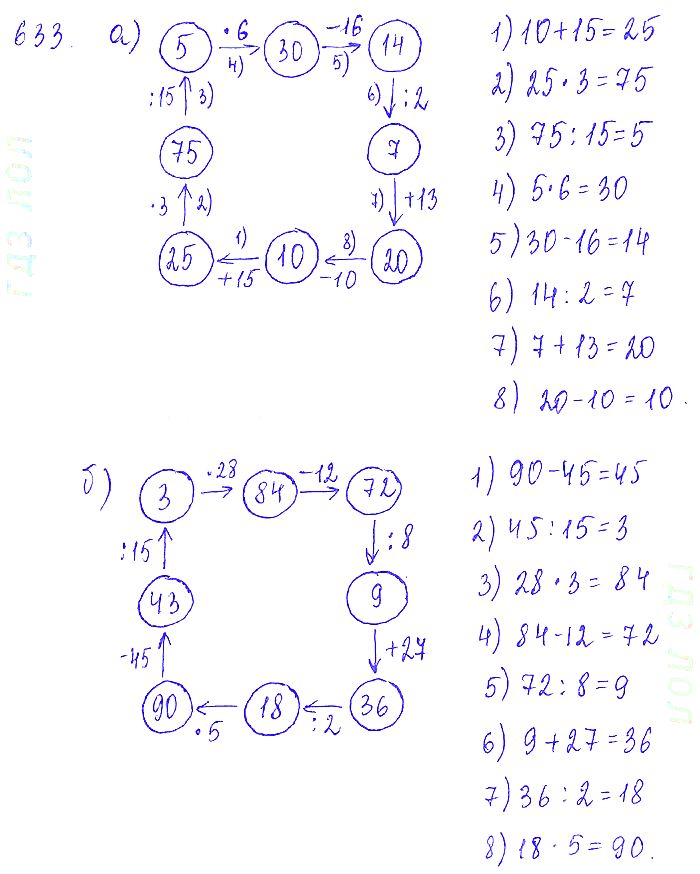 633. а) 5 ·6 4) 30 -16 5) 14
:15 3) 6) :2
75 7
·3 2) 7) +13
25 1) +15 10 8) -10 20
1) 10+15=25
2) 25·3=75
3) 75:15=5
4) 5·6=30
5) 30-16=14
6) 14:2=7
7) 7+13=20
8) 20-10=10.
б) 3 ·28 84 -12 72
:15 :8
43 9
-45 +27
90 ·5 18 :2 36
1) 90-45=45
2) 45:15=3
3) 28·3=84
4) 84-12=72
5) 72:8=9
6) 9+27=36
7) 36:2=18
8) 18·5=90.
ГДЗ ЛОЛ
ГДЗ ЛОЛ